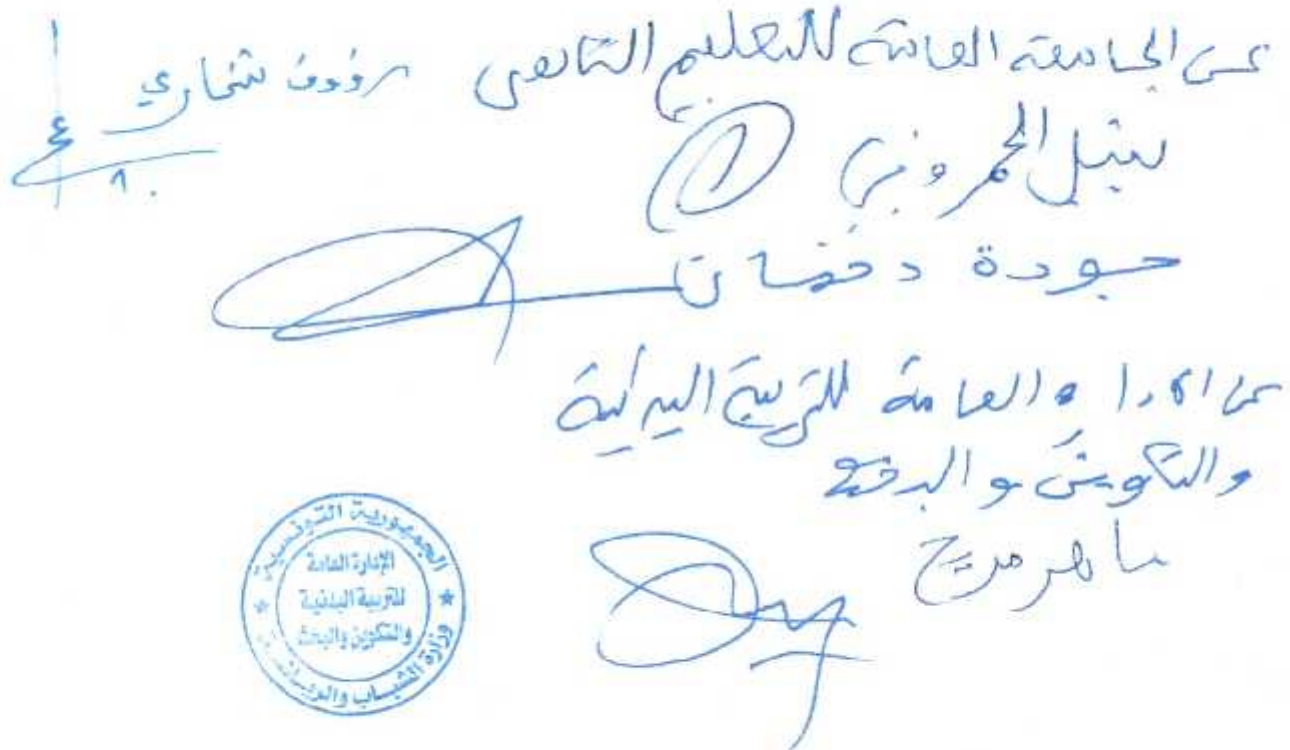 عن الجامعة العامة للتعليم الثانوي
نبيل الحمروني
جودة دحمان
عن الادارة العامة للتربية البدنية
والتكوين والبحث
ماهر مريح
الجمهورية التونسية
الإدارة العامة
للتربية البدنية
والتكوين والبحث
وزارة الشباب والرياضة